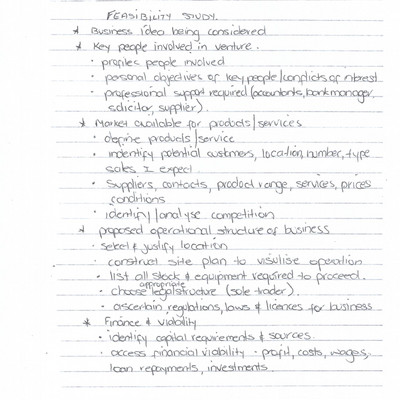 FEASIBILITY STUDY.
* Business idea being considered
* Key people involved in venture.
• profiles people involved
• personal objectives of key people/conflicts of interest
• professional support required (accountants, bank manager,
solicitor, supplier).
* Market available for products/services
• define products/service
• indentify potential customers, location, number, type
sales I expect.
• Suppliers, contacts, product range, services, prices
conditions
• identify/analyse competition
* proposed operational structure of business
• select & justify location
• construct site plan to visulise operation
• list all stock & equipment required to proceed.
• choose appropriate legal structure (sole trader).
• ascertain regulations, laws & licences for business
* Finance & viability
• identify capital requirements & sources.
• access financial viability - profit, costs, wages,
loan repayments, investments.